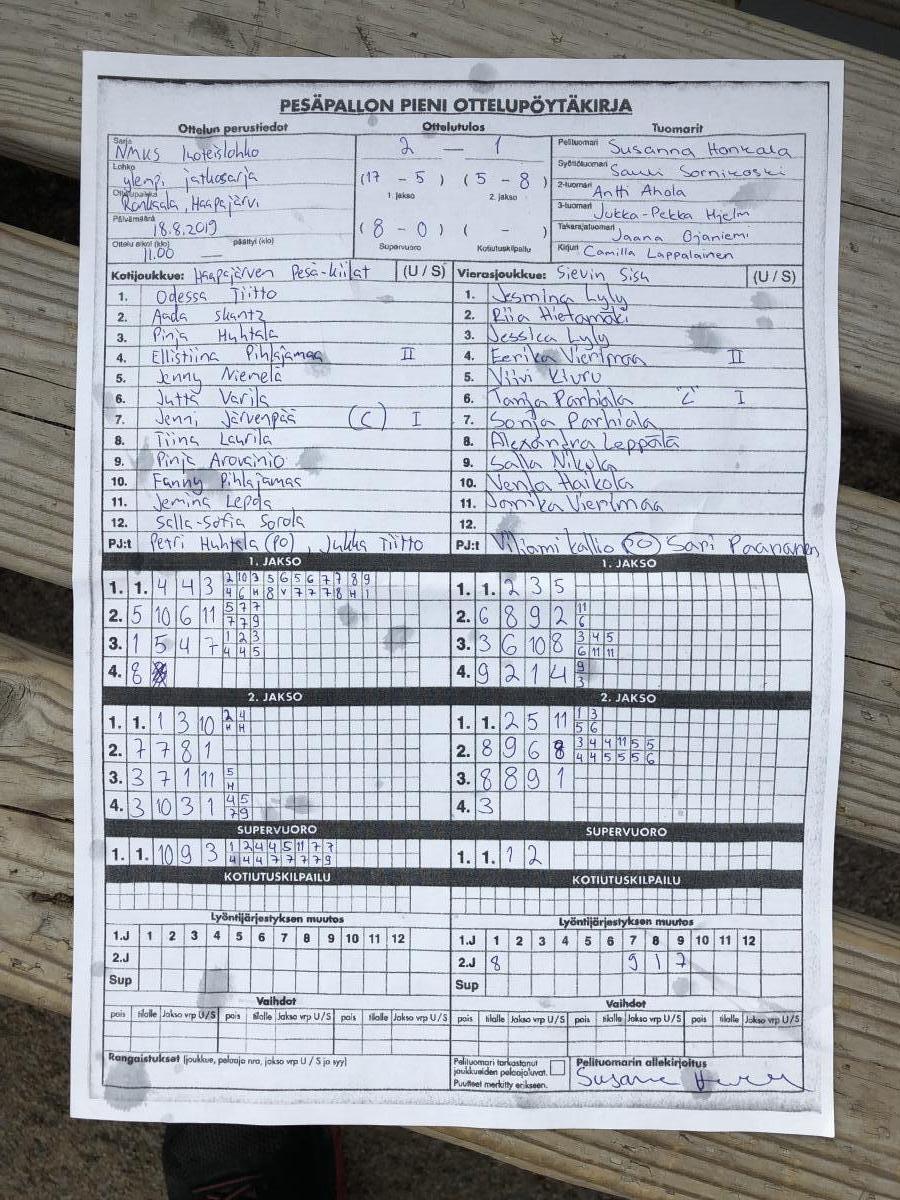 PESÄPALLON PIENI OTTELUPÖYTÄKIRJA
Ottelun perustiedot Ottelutulos Tuomarit
Sarja NMKS koteislohko
Lohko ylempi jatkosarja
Ottelupaikka Ronkaala, Haapajärvi
Päivämäärä 18.8.2019
Ottelu alkoi (klo) 11.00 päättyi (klo) —
2 — 1
(17 - 5) (5 - 8)
1. jakso 2. jakso
(8 - 0) ( - )
Supervuoro Kotiutuskilpailu
Pelituomari Susanna Honkala
Syöttötuomari Sauli Sornikoski
2-tuomari Antti Ahola
3-tuomari Jukka-Pekka Hjelm
Takarajatuomari Jaana Ojaniemi
Kirjuri Camilla Lappalainen
Kotijoukkue: Haapajärven Pesä-kiilat (U / S)
1. Odessa Tiitto
2. Aada Skantz
3. Pinja Huhtala
4. Ellistiina Pihlajamaa II
5. Jenny Niemelä
6. Jutta Varila
7. Jenni Järvenpää (C) I
8. Tiina Laurila
9. Pinja Arovainio
10. Fanny Pihlajamaa
11. Jemina Leppä
12. Salla-Sofia Sorola
PJ:t Petri Huhtala (PO), Jukka Tiitto
Vierasjoukkue: Sievin Sisu (U / S)
1. Jesmina Lyly
2. Riia Hietamäki
3. Jessica Lyly
4. Eerika Vierimaa II
5. Viivi Kluru
6. Tanja Parhiala "C" I
7. Sonja Parhiala
8. Alexandra Leppälä
9. Salla Nikula
10. Venla Haikola
11. Jannika Vierimaa
12.
PJ:t Viljami Kallio (PO) Sari Paananen
1. JAKSO
1. 1. 4 4 3 2 10 3 5 6 5 6 7 7 8 9
4 6 H 8 V 7 7 7 8 H 1
2. 5 10 6 11 5 7 7
7 7 9
3. 1 5 4 7 1 2 3
4 4 5
4. 8
1. JAKSO
1. 1. 2 3 5
2. 6 8 9 2 11
6
3. 3 6 10 8 3 4 5
6 11 11
4. 9 2 1 4 9
3
2. JAKSO
1. 1. 1 3 10 2 4
H H
2. 7 7 8 1
3. 3 7 1 11 5
H
4. 3 10 3 1 4 5
7 9
2. JAKSO
1. 1. 2 5 11 1 3
5 6
2. 8 9 6 8 3 4 4 11 5 5
4 4 5 5 5 6
3. 8 8 9 1
4. 3
SUPERVUORO
1. 1. 10 9 3 1 2 4 4 5 11 7 7
4 4 4 7 7 7 7 9
SUPERVUORO
1. 1. 1 2
KOTIUTUSKILPAILU
KOTIUTUSKILPAILU
Lyöntijärjestyksen muutos
1.J 1 2 3 4 5 6 7 8 9 10 11 12
2.J
Sup
Lyöntijärjestyksen muutos
1.J 1 2 3 4 5 6 7 8 9 10 11 12
2.J 8 9 1 7
Sup
Vaihdot
pois tilalle Jakso vrp U/S pois tilalle Jakso vrp U/S pois tilalle Jakso vrp U/S
Vaihdot
pois tilalle Jakso vrp U/S pois tilalle Jakso vrp U/S pois tilalle Jakso vrp U/S
Rangaistukset (joukkue, pelaaja nro, jakso vrp U / S ja syy)
Pelituomari tarkastanut
joukkueiden pelaajaluvat.
Puutteet merkitty erikseen.
Pelituomarin allekirjoitus